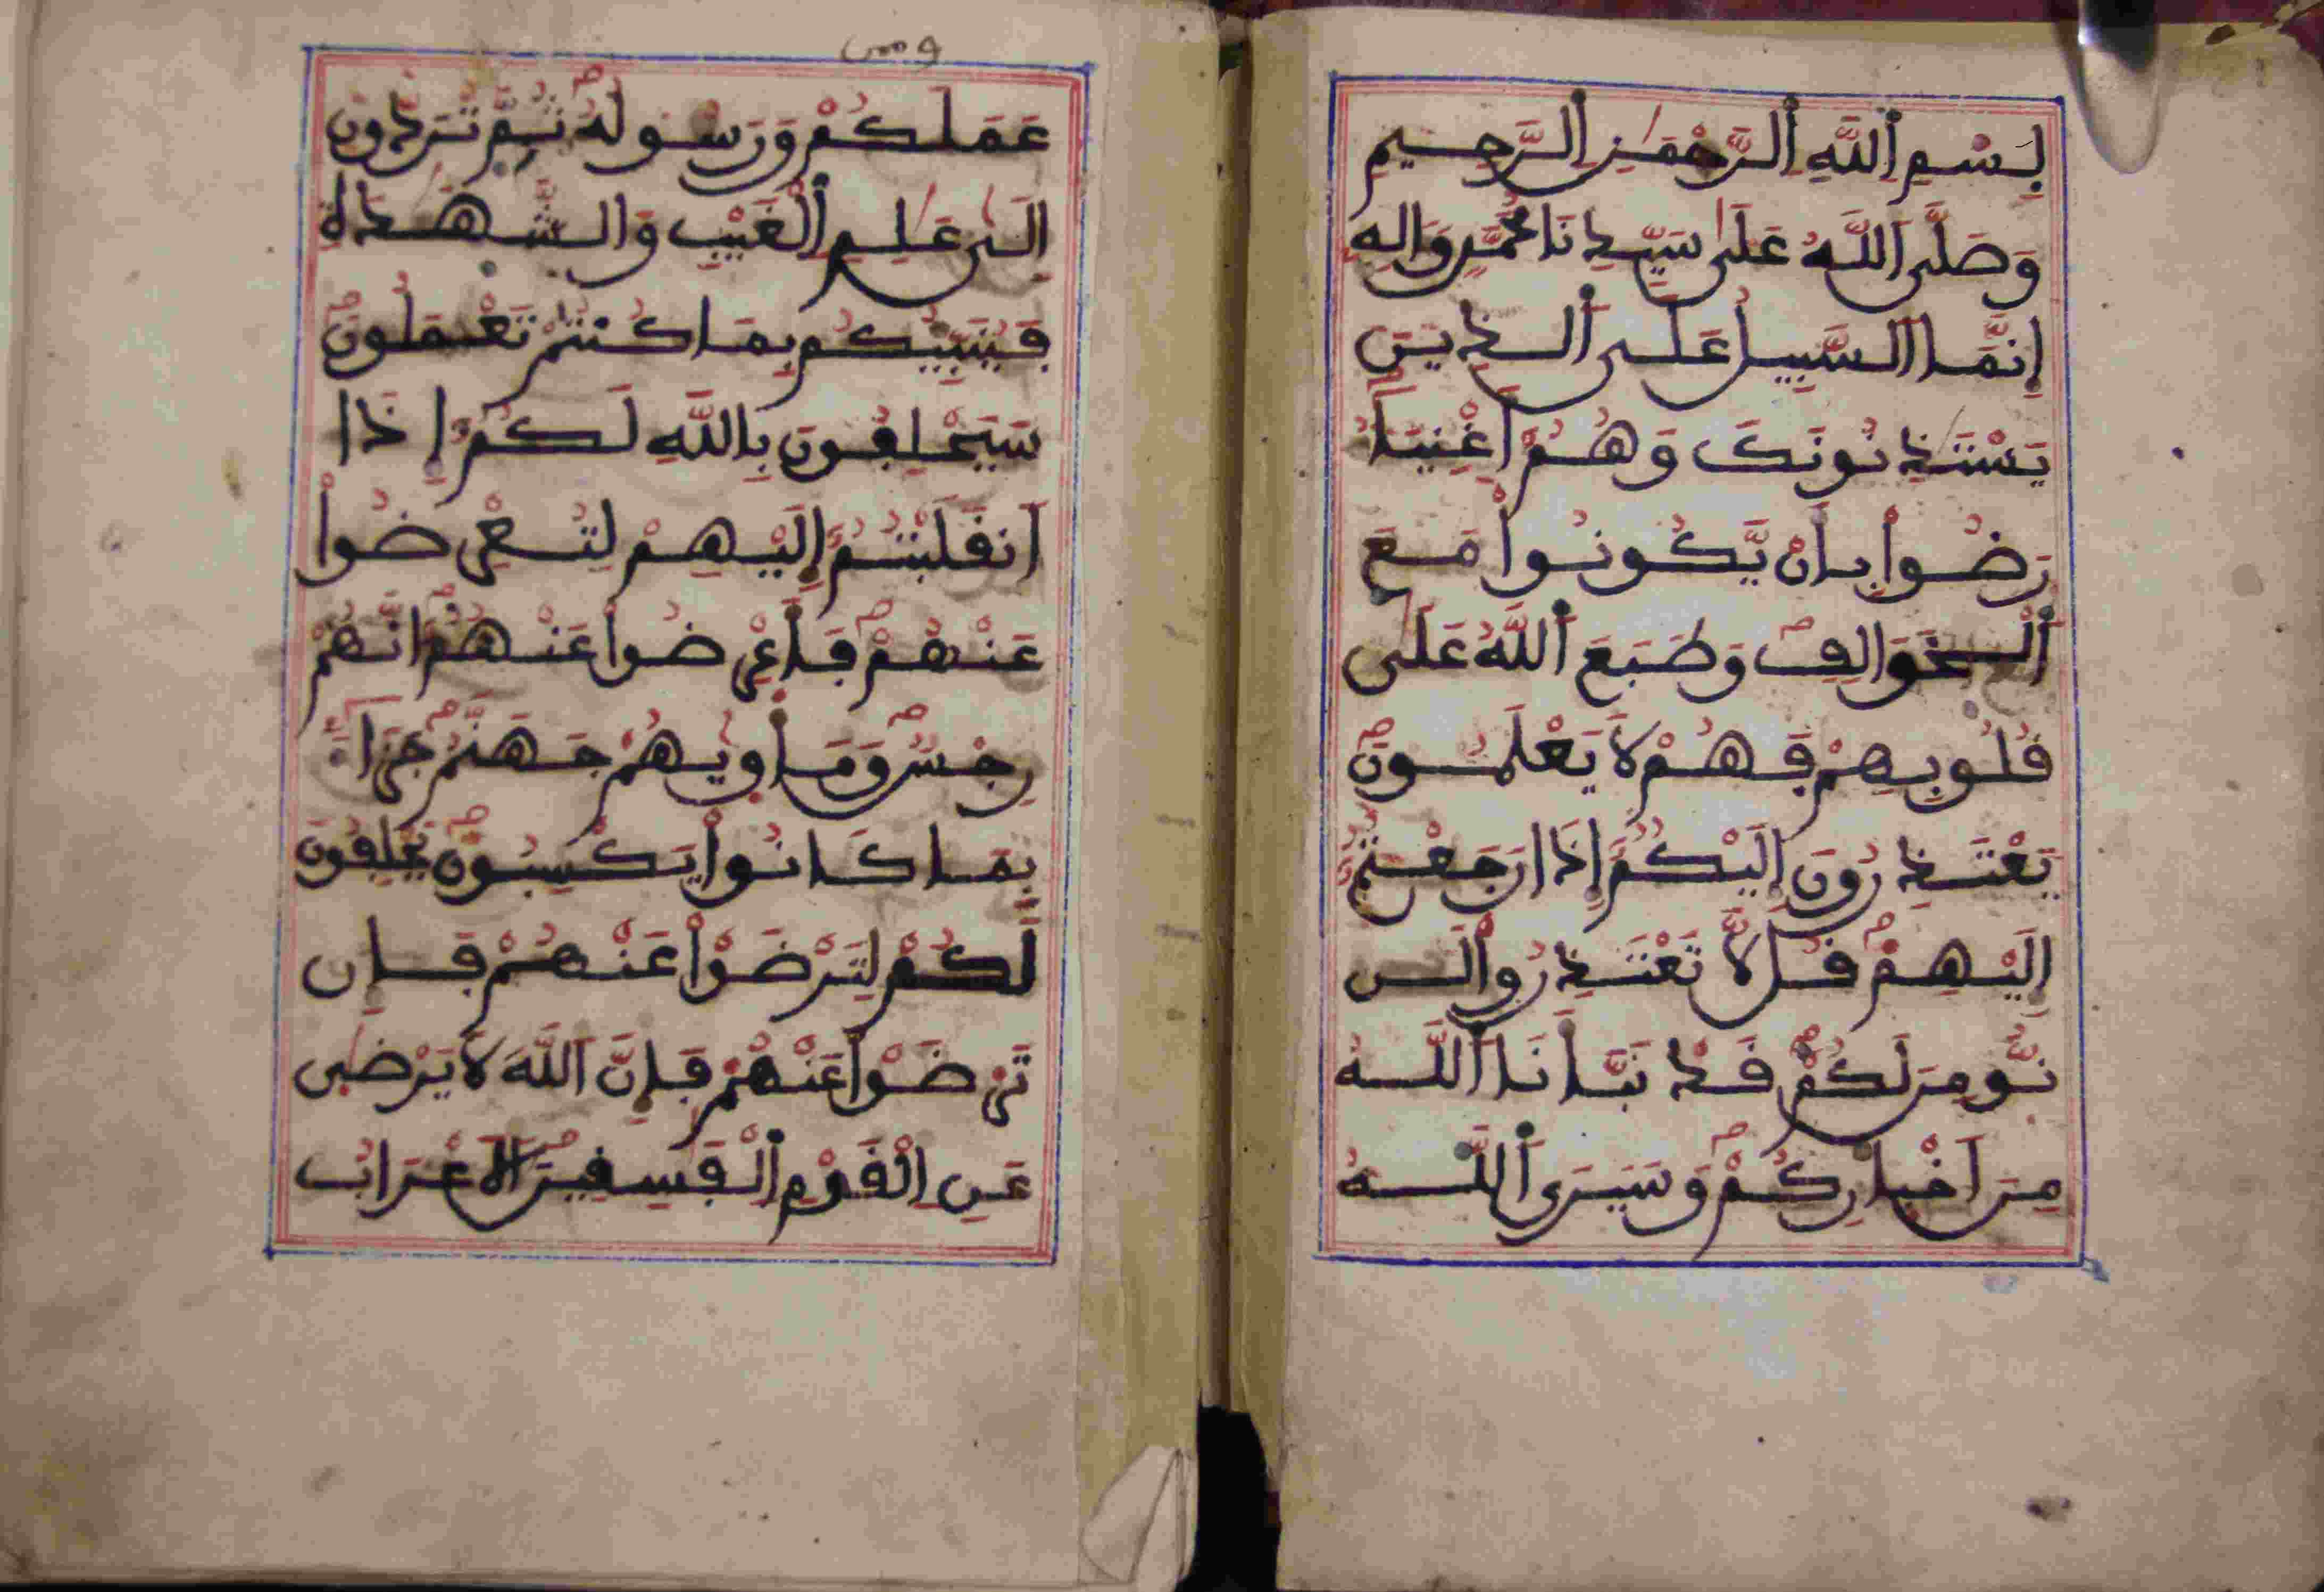 بِسْمِ اِ۬للَّهِ اِ۬لرَّحْمَٰنِ اِ۬لرَّحِيمِ
وَصَلَّى اَللَّهُ عَلَىٰ سَيِّدِنَا مُحَمَّدٍ وَالِهِ
إِنَّمَا اَ۬لسَّبِيلُ عَلَى اَ۬لذِينَ
يَسْتَٰٔذِنُونَكَ وَهُمُۥٓ أَغْنِيَآءُ
رَضُواْ بِأَنْ يَّكُونُواْ مَعَ
اَ۬لْخَوَالِفِ وَطَبَعَ اَ۬للَّهُ عَلَىٰ
قُلُوبِهِمْ فَهُمْ لَا يَعْلَمُونَ
يَعْتَذِرُونَ إِلَيْكُمُۥٓ إِذَا رَجَعْتُمُۥٓ
إِلَيْهِمْ قُل لَّا تَعْتَذِرُواْ لَن
نُّومِنَ لَكُمْ قَدْ نَبَّأَنَا اَ۬للَّهُ
مِنَ اَخْبِارِكُمْ وَسَيَرَى اَ۬للَّهُ
عَمَلَكُمْ وَرَسُولُهُۥ ثُمَّ تُرَدُّونَ
إِلَىٰ عَٰلِمِ اِ۬لْغَيْبِ وَالشَّهَٰدَةِ
فَيُنَبِّئُكُم بِمَا كُنتُمْ تَعْمَلُونَ
سَيَحْلِفُونَ بِاللَّهِ لَكُمُۥٓ إِذَا
اَ۪نقَلَبْتُمُۥٓ إِلَيْهِمْ لِتُعْرِضُواْ
عَنْهُمْ فَأَعْرِضُواْ عَنْهُمُۥٓ إِنَّهُمْ
رِجْسٌ وَمَأْوِيٰهُمْ جَهَنَّمُ جَزَآءَۢ
بِمَا كَانُواْ يَكْسِبُونَ يَحْلِفُونَ
لَكُمْ لِتَرْضَوْاْ عَنْهُمْ فَإِن
تَرْضَوْاْ عَنْهُمْ فَإِنَّ اَ۬للَّهَ لَا يَرْضَىٰ
عَنِ اِ۬لْقَوْمِ اِ۬لْفَٰسِقِينَ اَ۬لَاعْرَابُ